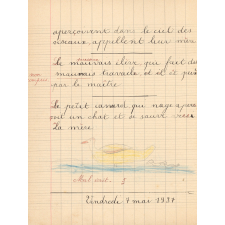 aperçoivent dans le ciel des
oiseaux appellent leur mère
Le mauvais élève qui fait des
mauvais travails et il
par le maître
Le petit canard qui nage aperçoit
un chat et se sauve vers
La mère
Mal écrit 5
Vendredi 7 mai 1937